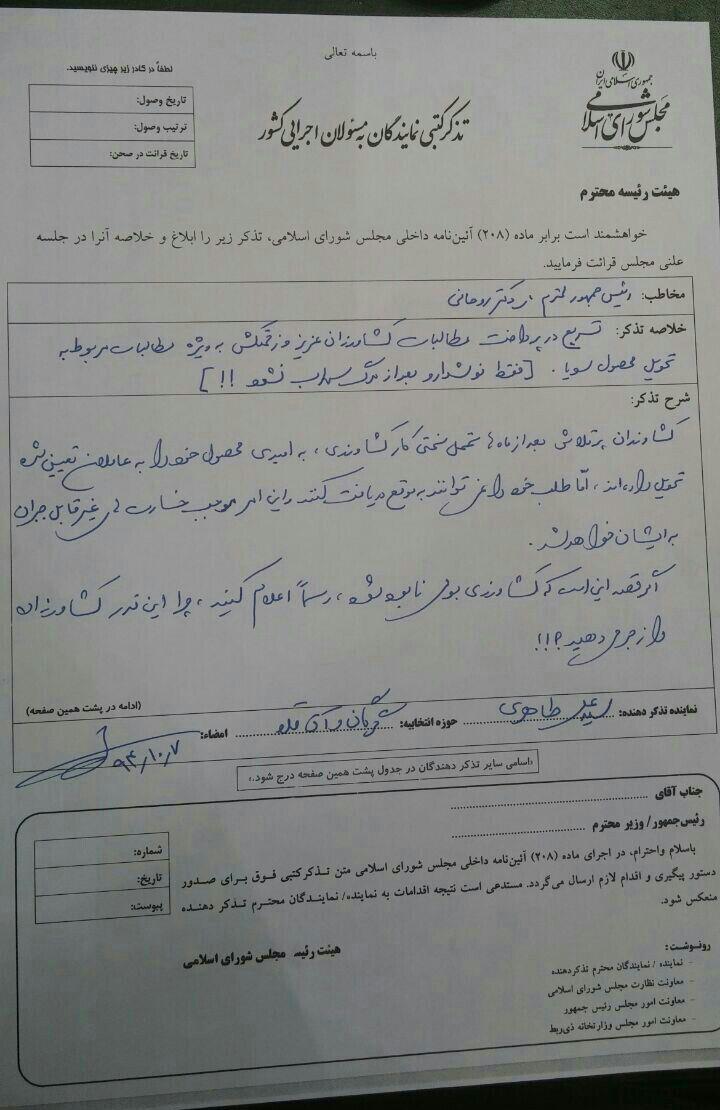 باسمه تعالی
جمهوری اسلامی ایران
مجلس شورای اسلامی
لطفاً در کادر زیر چیزی ننویسید.
تاریخ وصول:
ترتیب وصول:
تاریخ قرائت در صحن:
تذکر کتبی نمایندگان به مسئولان اجرایی کشور
هیئت رئیسه محترم
خواهشمند است برابر ماده (۲۰۸) آئین‌نامه داخلی مجلس شورای اسلامی، تذکر زیر را ابلاغ و خلاصه آنرا در جلسه
علنی مجلس قرائت فرمایید.
مخاطب: رئیس جمهور محترم دکتر روحانی
خلاصه تذکر: تسریع در پرداخت مطالبات کشاورزان عزیز و زحمتکش به ویژه مطالبات مربوط به
تحویل محصول سویا. [فقط نوشدارو بعد از مرگ سهراب نشود!!]
شرح تذکر:
کشاورزان پرتلاش بعد از ماه‌ها تحمل سختی کار کشاورزی، به امیدی محصول خود را به عاملان تعیین شده
تحویل داده‌اند، امّا طلب خود را نمی توانند به موقع دریافت کنند و این امر موجب خسارت های غیرقابل جبران
به ایشان خواهد شد.
اگر قصد این است که کشاورزی بومی نابود شود، رسماً اعلام کنید، چرا این قدر کشاورزان
را زجر می دهید؟!!
(ادامه در پشت همین صفحه)
نماینده تذکر دهنده: سید علی طاهری حوزه انتخابیه: گرگان و آق قلا امضاء:
۹۴/۱۰/۷
«اسامی سایر تذکر دهندگان در جدول پشت همین صفحه درج شود.»
جناب آقای
رئیس‌جمهور/ وزیر محترم
شماره:
تاریخ:
پیوست:
باسلام واحترام، در اجرای ماده (۲۰۸) آئین‌نامه داخلی مجلس شورای اسلامی متن تذکرکتبی فوق برای صدور
دستور پیگیری و اقدام لازم ارسال می‌گردد. مستدعی است نتیجه اقدامات به نماینده/ نمایندگان محترم تذکر دهنده
منعکس شود.
هیئت رئیسه مجلس شورای اسلامی
رونوشت:
- نماینده / نمایندگان محترم تذکردهنده
- معاونت نظارت مجلس شورای اسلامی
- معاونت امور مجلس رئیس جمهور
- معاونت امور مجلس وزارتخانه ذی‌ربط